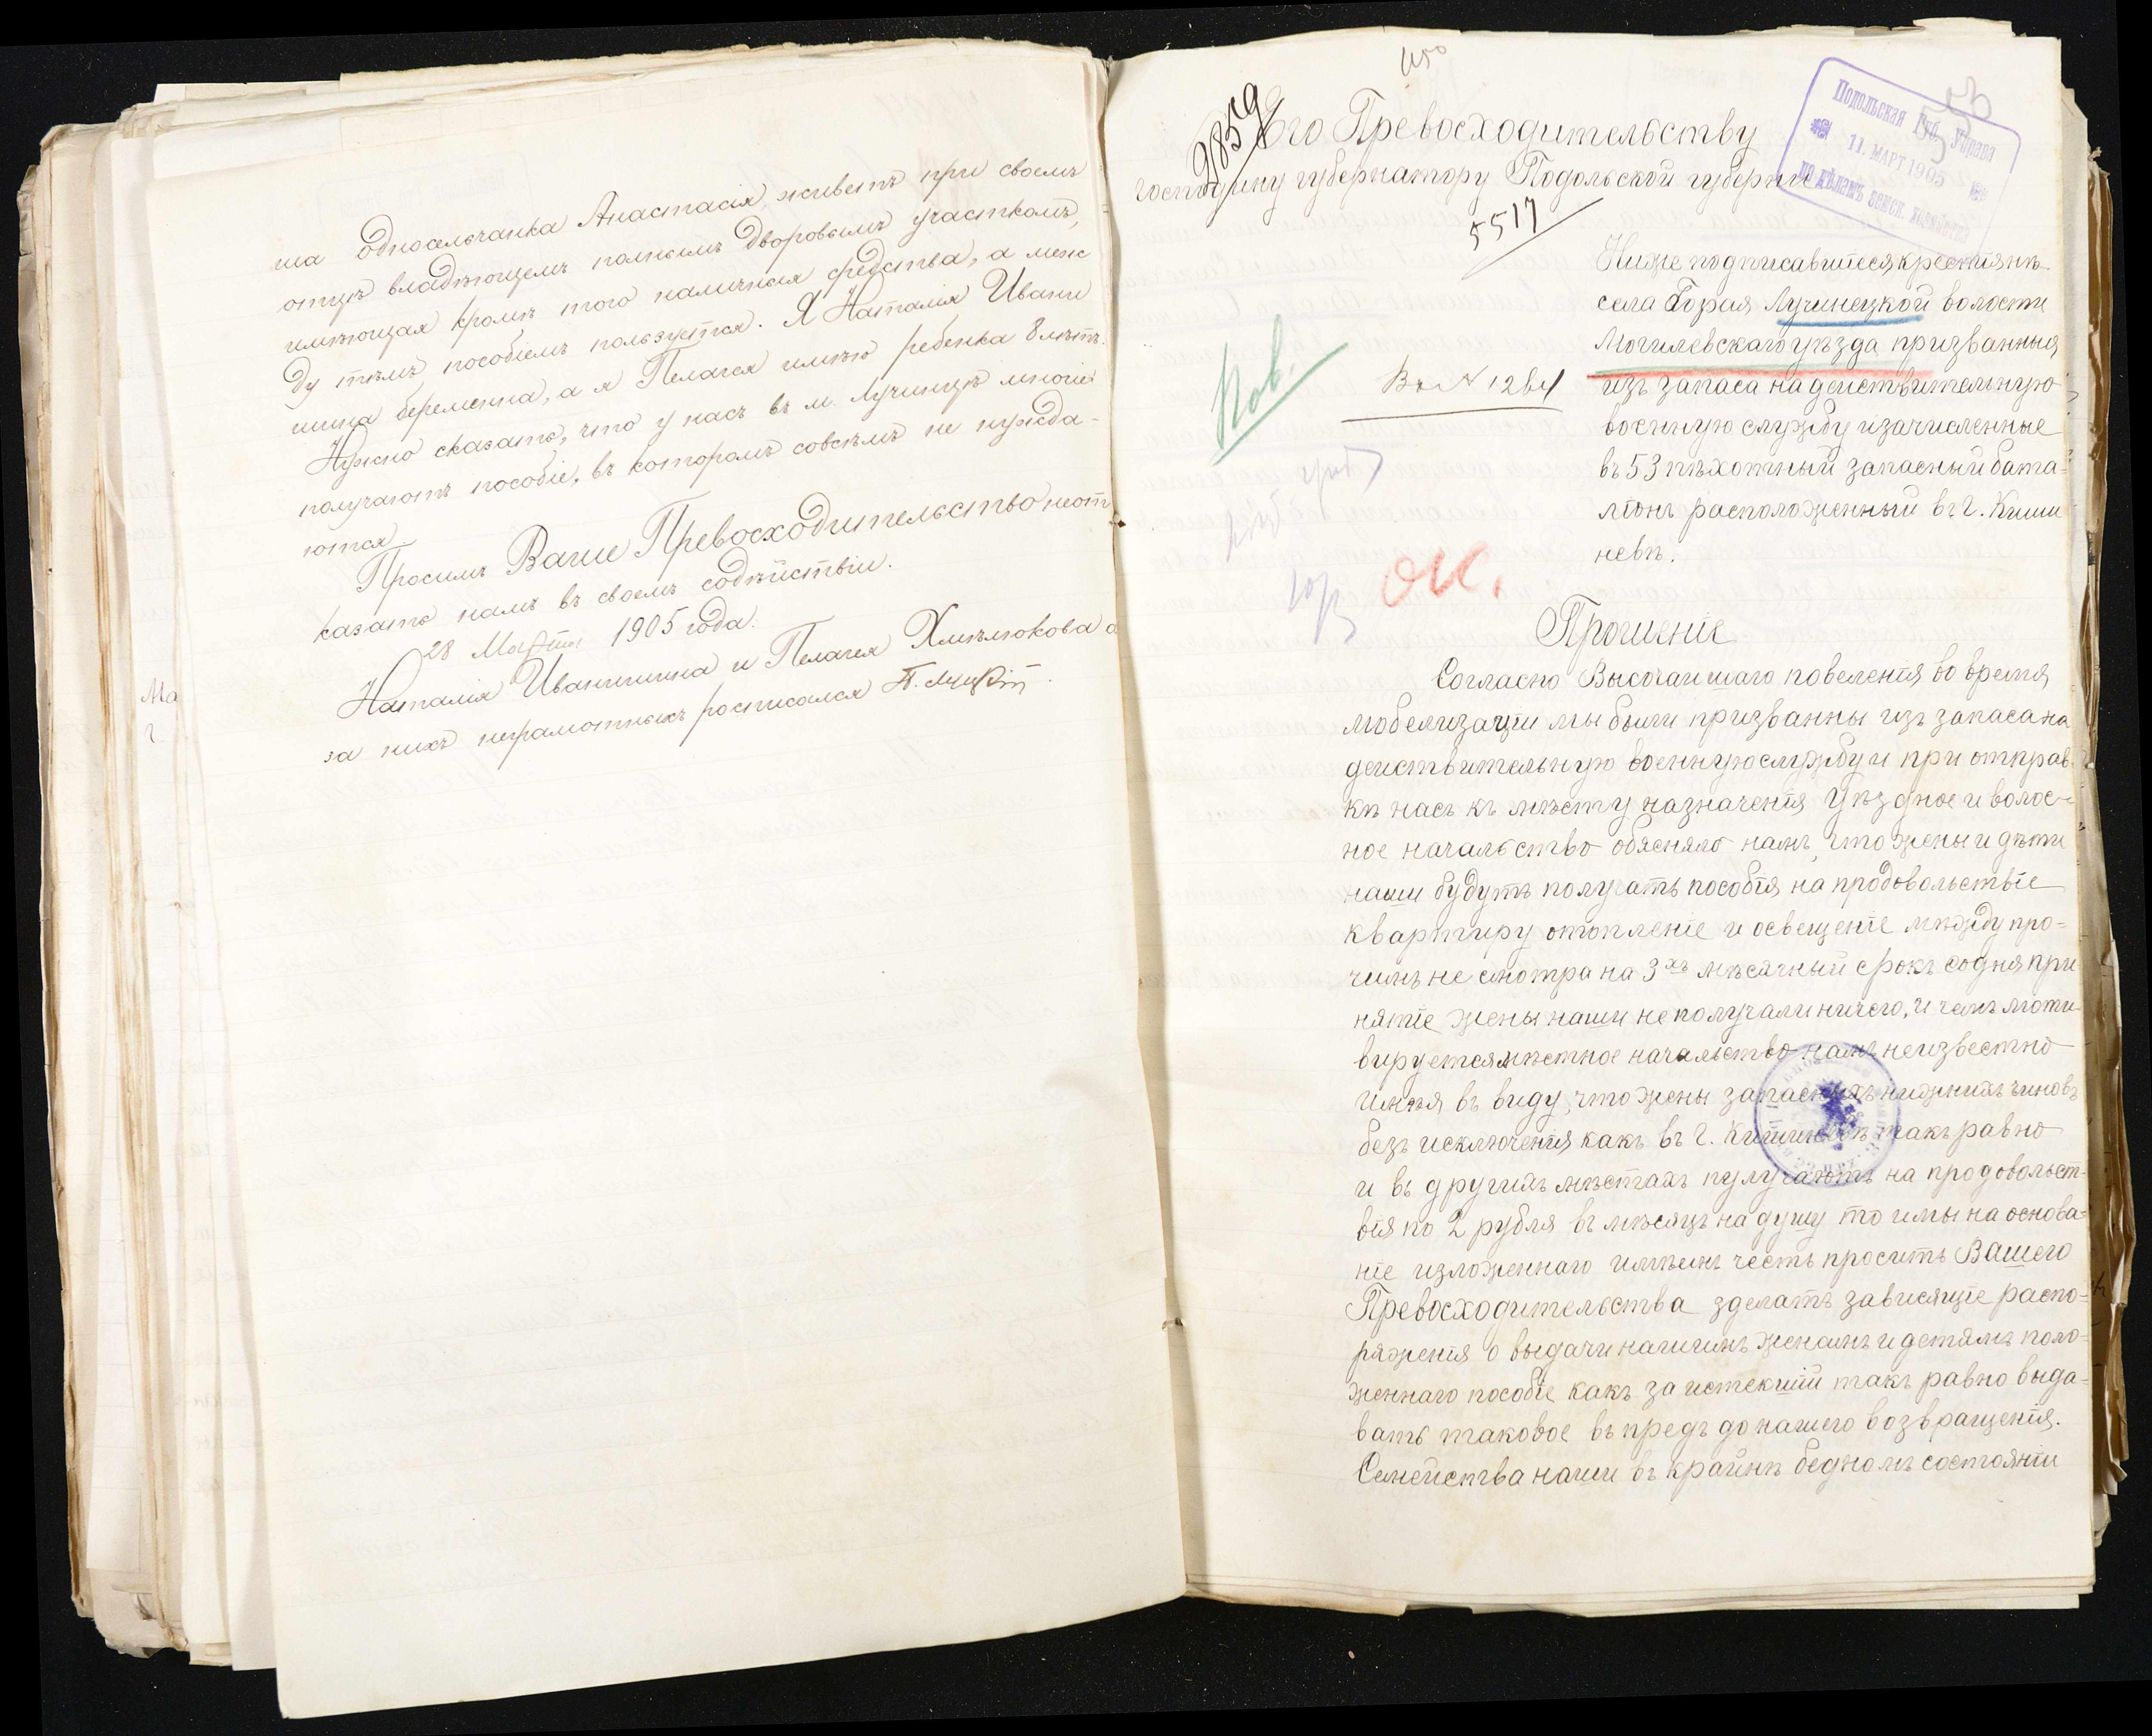 ша односельчанка Анастасія, живетъ при своемъ
отцѣ владѣющемъ полнымъ дворовымъ участкомъ,
имѣющая кромѣ того наличныя средства, а меж
ду тѣмъ пособіемъ пользуется. Я Наталія Ивани
шина беременна, а я Пелагея имѣю ребенка 8 лѣтъ.
Нужно сказать, что у насъ въ м. Лучинцѣ многіе
получаютъ пособіе, въ которомъ совсѣмъ не нужда-
ются.
Просимъ Ваше Превосходительство неот
казать намъ въ своемъ содѣйствіи.
28 Марта 1905 года.
Наталія Иванишина и Пелагея Хмѣлюкова а
за нихъ неграмотныхъ росписался П.
Ма
9859
Его Превосходительству
господину губернатору Подольской губерніи
5517
53
Подольская Губ. Управа
11. МАРТ 1905
по дѣламъ земск. хозяйства
Ниже подписавшіеся крестіянѣ
села Борая Лучинецкой волости
Могилевскаго уѣзда призванныя
изъ запаса на действительную
военную службу и зачисленные
въ 53 пѣхотный запасный бата-
ліонъ расположенный въ г. Киши
невѣ.
Ков.
Вх № 1264
ОК.
Прошеніе
Согласно Высочаишаго повеленія во время
мобелизаціи мы были призванны изъ запаса на
деиствительную военную службу и при отправ-
кѣ насъ къ мѣсту назначенія Уѣздное и волос-
ное начальство обясняло намъ, что жены и дѣти
наши будутъ получать пособія на продовольствіе
квартиру отопленіе и освещеніе между про-
чимъ не смотра на 3хъ мѣсячный срокъ со дня при
нятіе жены наши не получали ничего, и чемъ моти-
вируется мѣстное начальство намъ неизвестно
имѣя въ виду, что жены запасныхъ нижнихъ чиновъ
безъ исключенія какъ въ г. Кишиневѣ такъ равно
и въ другихъ мѣстахъ пулучаютъ на продовольст-
вія по 2 рубля въ мѣсяцъ на душу то и мы на основа-
ніе изложеннаго имѣемъ честь просить Вашего
Превосходительства зделать зависящіе распо-
ряженія о выдачи нашимъ женамъ и детямъ поло-
женнаго пособіе какъ за истекшій такъ равно выда-
вать таковое въпредъ до нашего возвращенія.
Семейства наши въ крайнѣ бедномъ состояніи